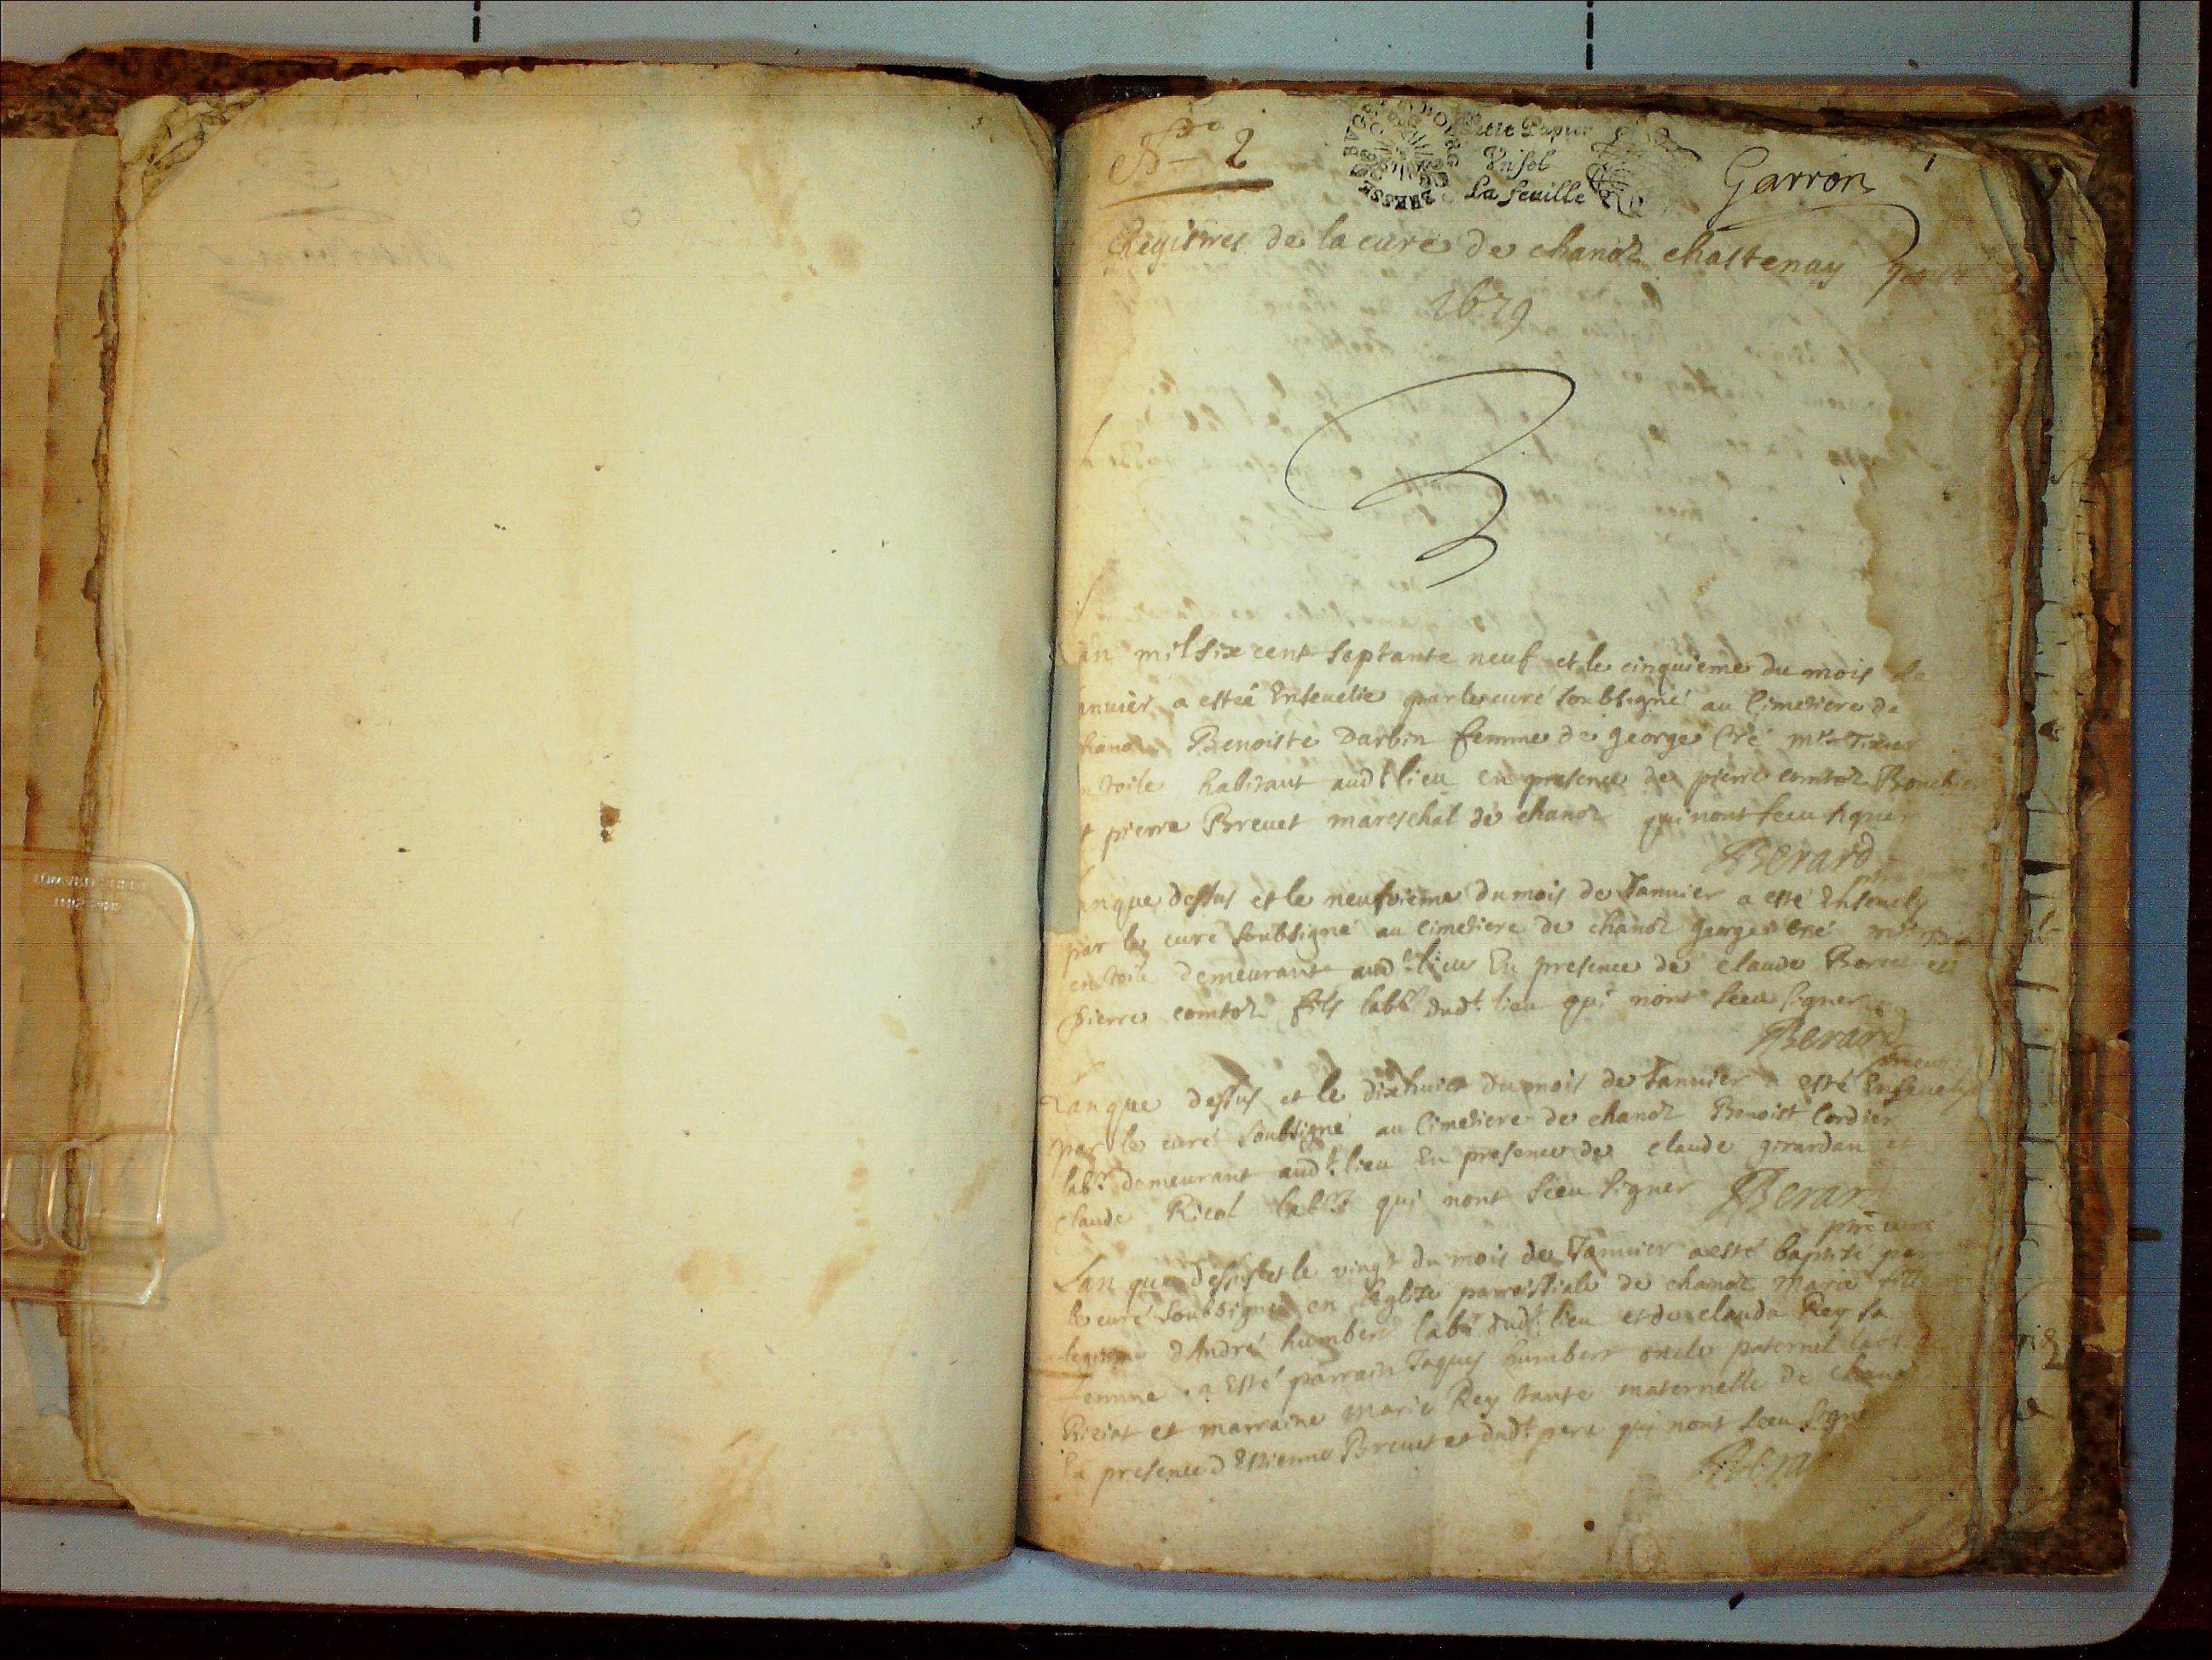 No 2
Petit Papier
Vn sol
La feuille
Garron
1
Registres de la cure de chanoz chastenay pour
1679
an mil six cent septante neuf et le cinquieme du mois de
anuier a esteé Enseuelie par le curé soubsigné au Cimetiere de
hanoz Benoiste Darbin femme de george Cré mre Tixier
n toile habitant audt lieu en presence de pierre comtoz Boucher
t pierre Breuet mareschal de chanoz qui nont sceu signer
Berard
anque dessus et le neufvieme du mois de Januier a esté Enseuely
par le curé soubsigné au cimetiere de chanoz george Cré mre
en toile demeurant audt lieu En presence de claude Boreu et
pierre comtoz fils labr dudt lieu qui nont sceu signer
Berard
Lanque dessus et le dixhuict du mois de Januier a esté Enseuely
par le curé soubsigné au Cimetiere de chanoz Benoist Cordier
labr demeurant audt lieu En presence de claude girardan et
claude Ricol labrs qui nont sceu signer Berard
ptre curé
Lan que dessus et le vingt du mois de Januier a esté baptisé par
le curé soubsigné en leglize parroissiale de chanoz marie fille
legitime dAndré humbert labr dudt lieu et de clauda Rey sa
femme a Esté parrain Jaques humbert oncle paternel labr de
et marraine marie Rey tante maternelle de chanoz
En presence dEstienne Breuet et dudt pere qui nont sceu signe
Bera